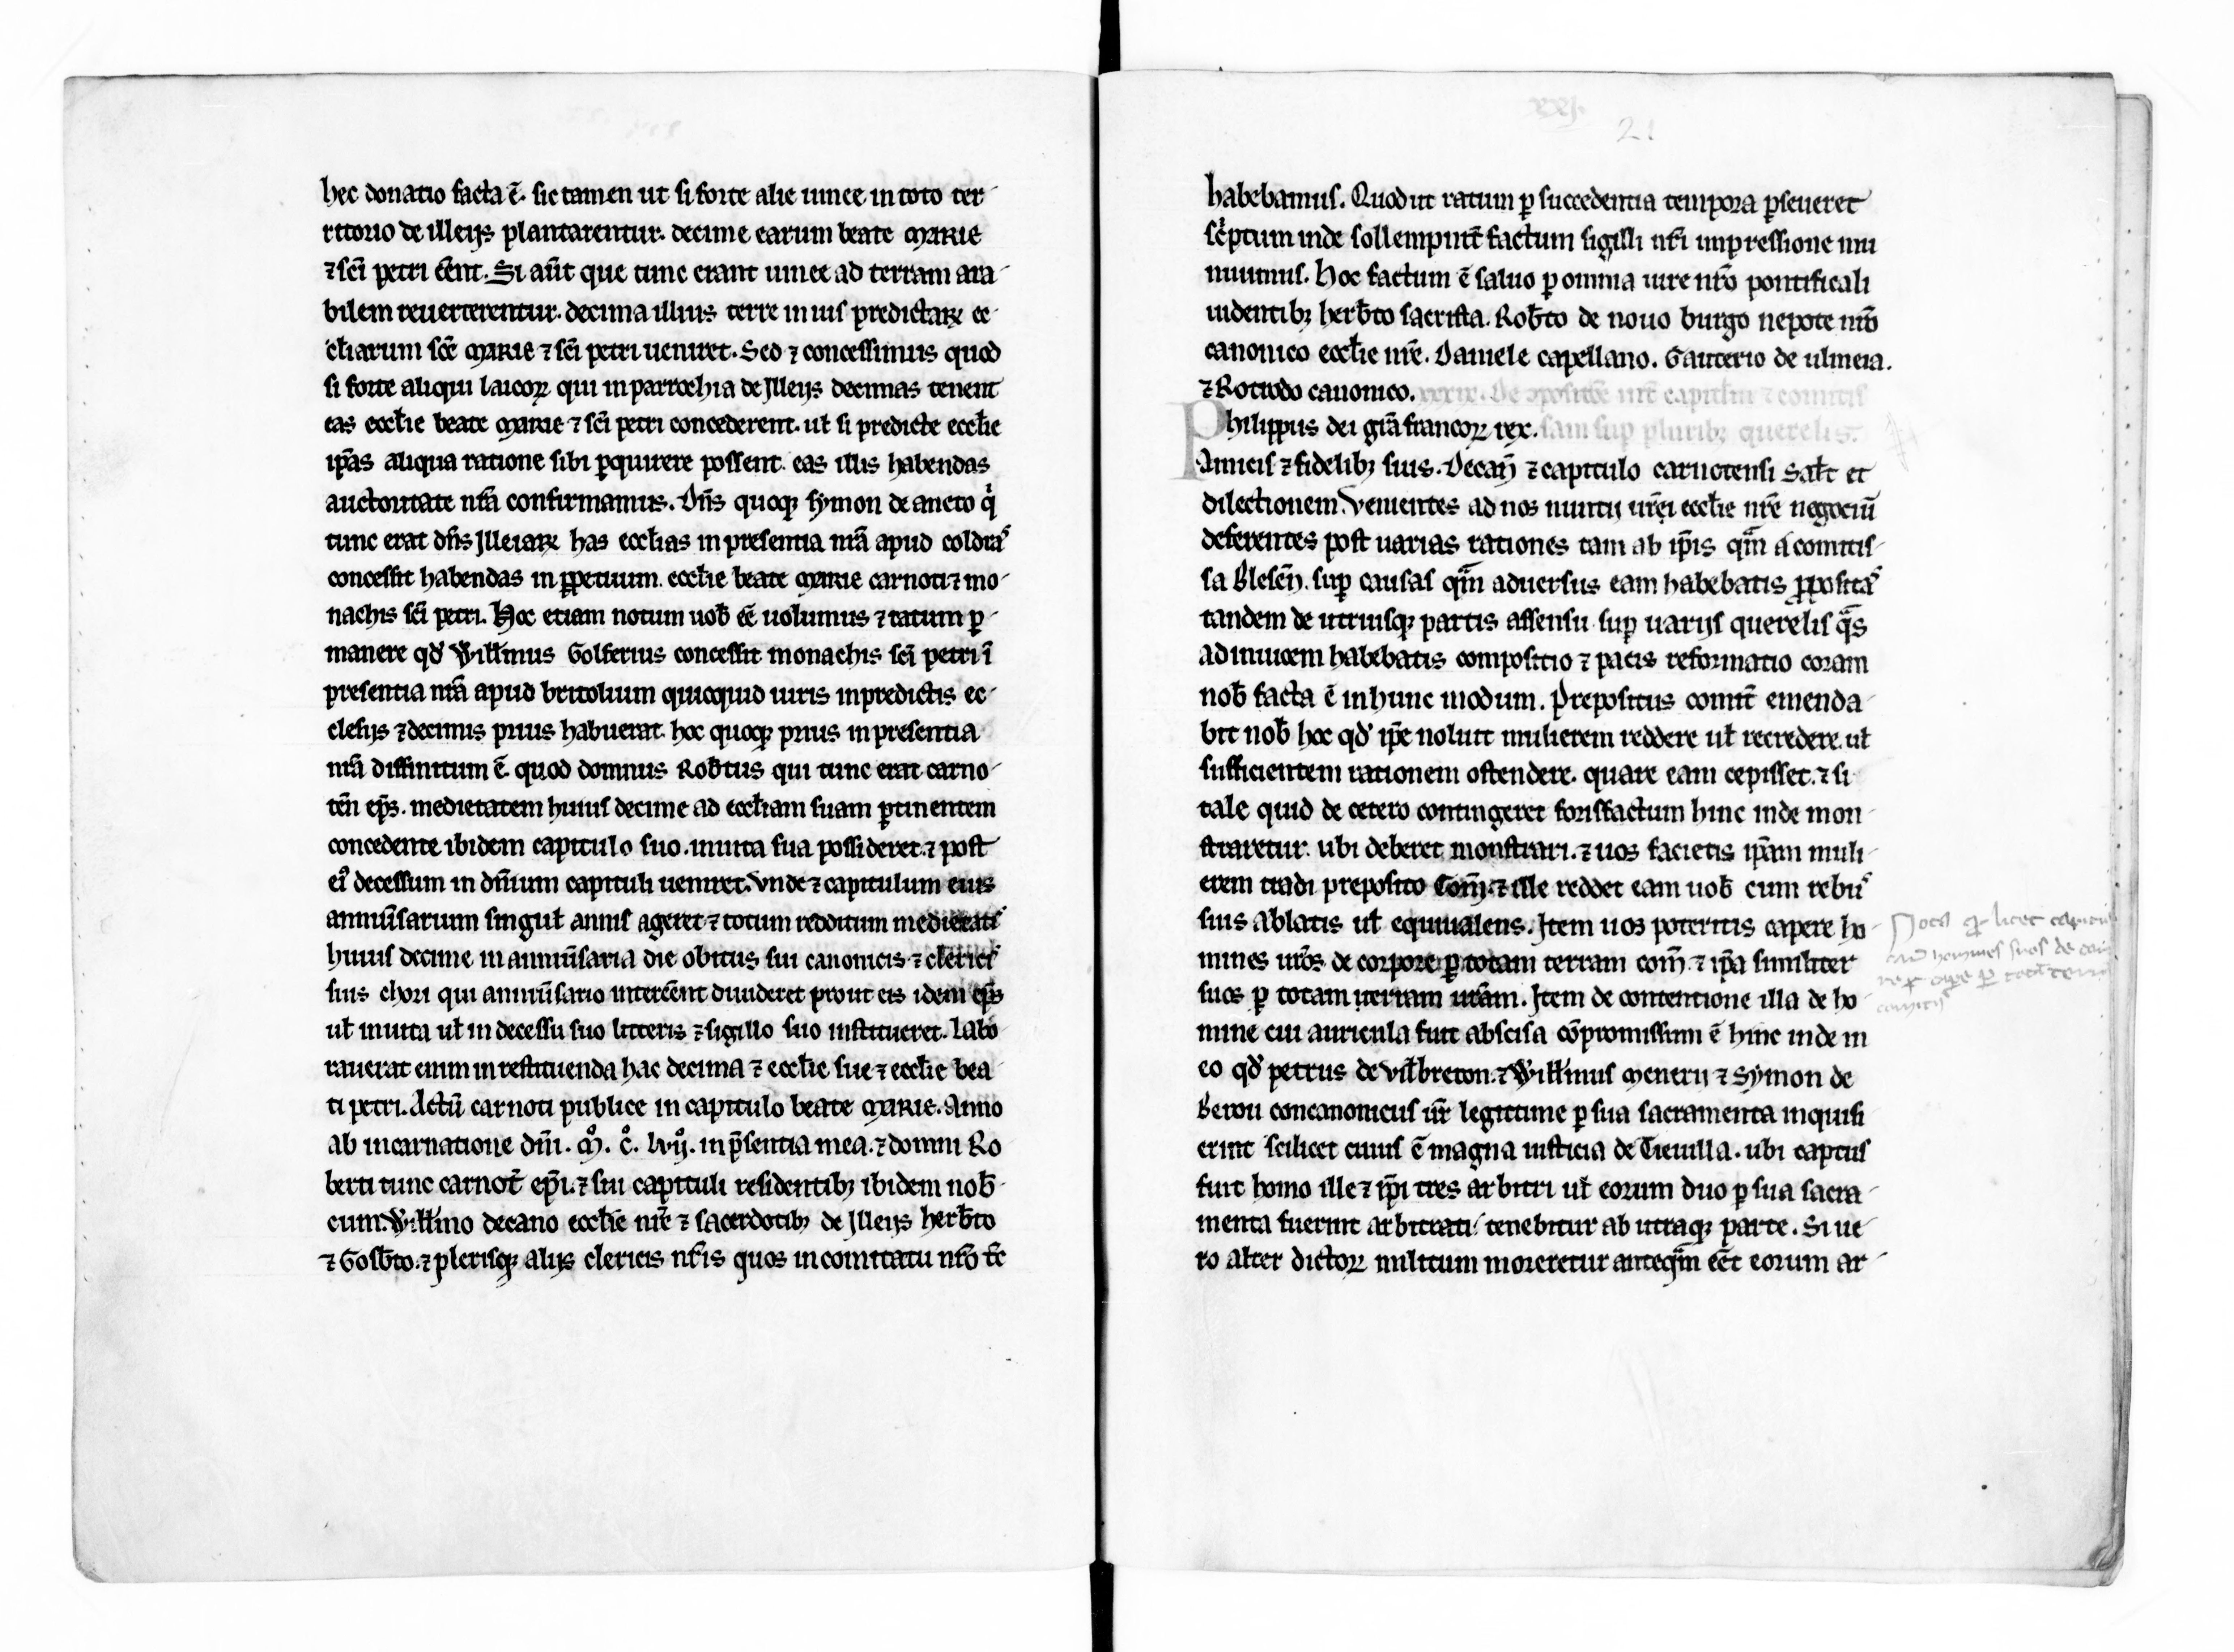 hec donatio facta ē. sic tamen ut si forte alie uinee in toto ter-
ritorio de illeijs plantarentur. decime earum beate MARIE
⁊ sc̄i petri eēnt. Si aūt que tunc erant uinee ad terram ara-
bilem reuerterentur. decima illius terre in ius predictaꝝ ec-
cl̄iarum sc̄e MARIE ⁊ sc̄i petri ueniret. Sed ⁊ concessimus quod
si forte aliqui laicoꝝ qui in parrochia de Jlleijs decimas tenent
eas eccl̄ie beate MARIE ⁊ sc̄i petri concederent. ul̄ si predicte eccl̄ie
ip̄as aliqua ratione sibi ꝑquirere possent. eas illis habendas
auctoritate nr̄a confirmamus. Dn̄s quoqꝫ symon de aneto qͥ
tunc erat dn̄s Jlleiaꝝ has eccl̄ias in presentia nr̄a apud coldrꝰ
concessit habendas in ꝑpetuum. eccl̄ie beate MARIE carnoti ⁊ mo-
nachis sc̄i petri. Hoc etiam notum uob̄ eē uolumus ⁊ ratum ꝑ-
manere qd̓ Will̄mus Golferius concessit monachis sc̄i petri ī
presentia nr̄a apud britolium quicquid iuris in predictis ec-
clesijs ⁊ decimis prius habuerat. hoc quoqꝫ prius in presentia
nr̄a diffinitum ē. quod domnus Rob̄tus qui tunc erat carno-
tēn ep̄s. medietatem huius decime ad eccl̄iam suam ꝑtinentem
concedente ibidem capitulo suo. in uita sua possideret. ⁊ post
eiꝰ decessum in dn̄ium capituli ueniret. Vnde ⁊ capitulum eius
anniūsarium singul̄ annis ageret ⁊ totum redditum medietatꝭ
huius decime in anniūsaria die obitus sui canonicis ⁊ clericꝭ
suis chori qui anniūsario intereēnt diuideret prout eis idem ep̄s
ul̄ in uita ul̄ in decessu suo litteris ⁊ sigillo suo institueret. Labo-
rauerat enim in restituenda hac decima ⁊ eccl̄ie sue ⁊ eccl̄ie bea-
ti petri. Actū carnoti publice in capitulo beate MARIE. Anno
ab incarnatione dn̄i. M̊. C̊. lvij̊. in p̄sentia mea. ⁊ domni Ro
berti tunc carnot̄ ep̄i. ⁊ sui capituli residentibꝫ ibidem nob̄-
cum. Will̄mo decano eccl̄ie nr̄e ⁊ sacerdotibꝫ de Jlleijs herb̄to
⁊ Gosb̄to. ⁊ plerisqꝫ alijs clericis nr̄is quos in comitatu nr̄o tc̄
21
habebamus. Quod ut ratum ꝑ succedentia tempora ꝑseueret
scͥptum inde sollempnit̄ factum sigilli nr̄i impressione mu
niuimus. Hoc factum ē saluo ꝑ omnia iure nr̄o pontificali
uidentibꝫ herb̄to sacrista. Rob̄to de nouo burgo nepote nr̄o
canonico eccl̄ie nr̄e. Daniele capellano. Gauterio de ulmeia.
⁊ Rotrodo canonico. xxxix. De ꝯpositōe int̄ capitl̄m ⁊ comitis
Philippus dei grā francoꝝ rex. sam sup pluribꝫ querelis.
Amicis ⁊ fidelibꝫ suis. Decan̄ ⁊ capitulo carnotensi sal̄t et
dilectionem. Venientes ad nos nuntij ur̄i eccl̄ie nr̄e negociū
deferentes post uarias rationes tam ab ip̄is qͣm á comitis-
sa Blesēn. sup̱ causas qͣm aduersus eam habebatis ꝓpositꝭ
tandem de utriusqꝫ partis assensu sup̱ uarijs querelis qͣs
ad inuicem habebatis compositio ⁊ pacis reformatio coram
nob̄ facta ē in hunc modum. Prepositus comit̄ emenda-
bit nob̄ hoc qd̓ ip̄e noluit mulierem reddere ul̄ recredere. ul̄
sufficientem rationem ostendere. quare eam cepisset. ⁊ si
tale quid de cetero contingeret forisfactum hinc inde mon-
straretur. ubi deberet monstrari. ⁊ uos facietis ip̄am muli-
erem tradi preposito Com̄. ⁊ ille reddet eam uob̄ cum rebꝰ
suis ablatis ul̄ equiualens. Item uos poteritis capere ho-
mines ur̄os de corpore ꝑ totam terram com̄. ⁊ ip̄a similiter
suos ꝑ totam terram ur̄am. Item de contentione illa de ho-
mine cui auricula fuit abscisa cōpromissum ē hinc inde in
eo qd̓ petrus de vill̄breton. ⁊ Will̄mus Menerij ⁊ Symon de
Berou concanonicus ur̄ legitime ꝑ sua sacramenta inquisi
erint scilicet cuius ē magna iusticia de Tieuilla. ubi captus
fuit homo ille ⁊ ip̄i tres arbitri ul̄ eorum duo ꝑ sua sacra-
menta fuerint arbitrati tenebitur ab utraqꝫ parte. Si ue-
ro alter dictoꝝ militum moreretur anteqͣm eēt eorum ar-
Nota qd̓ licet capitulū
homines suos de cor
capere ꝑ totā terrā